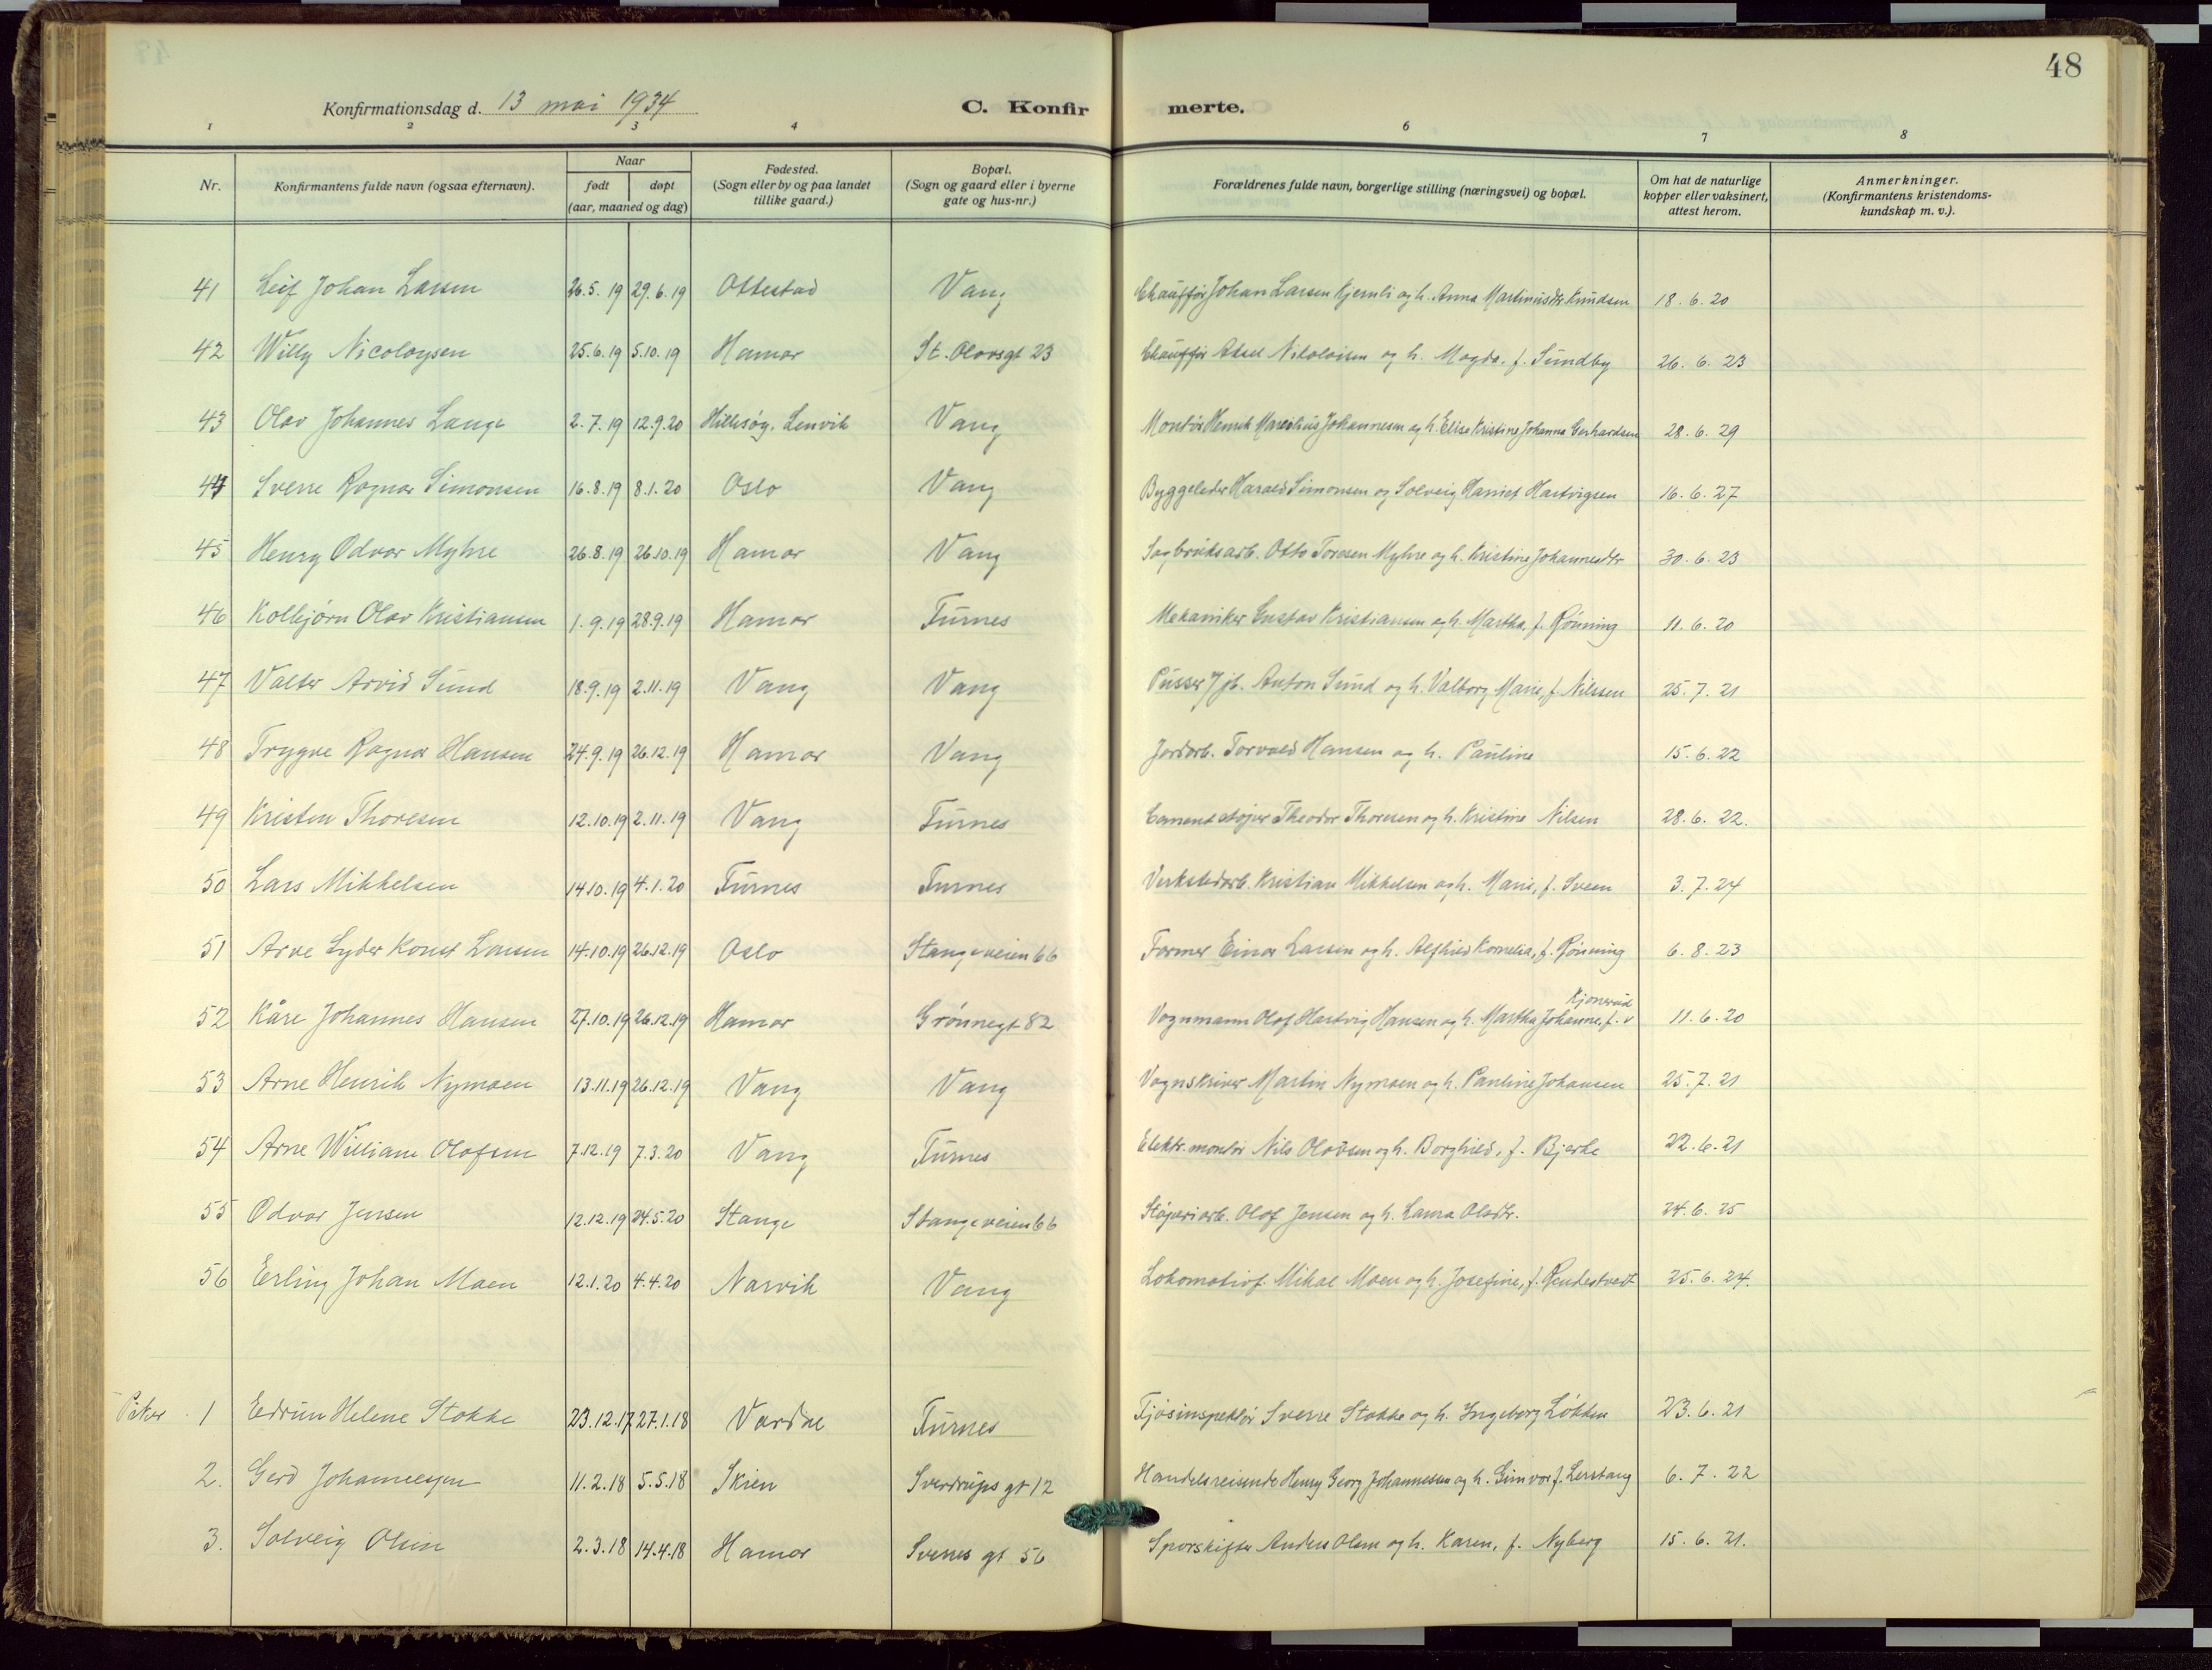 48
Konfirmationsdag d. 13 mai 1934
C. Konfir merte.
1 2 3 4 6 7 8
Nr.
Konfirmantens fulde navn (ogsaa efternavn).
Naar
født døpt
(aar, maaned og dag)
Fødested.
(Sogn eller by og paa landet
tillike gaard.)
Bopæl.
(Sogn og gaard eller i byerne
gate og hus-nr.)
Forældrenes fulde navn, borgerlige stilling (næringsvei) og bopæl.
Om hat de naturlige
kopper eller vaksinert,
attest herom.
Anmerkninger.
(Konfirmantens kristendoms-
kundskap m. v.).
41 Leif Johan Larsen 26.5.19 29.6.19 Ottestad Vang Chauffør Johan Larsen Kjernli og h. Anna Martinusdtr. Knudsen 18.6.20
42 Willy Nicolaysen 25.6.19 5.10.19 Hamar St. Olavsgt 23 Chauffør Aksel Nikolaisen og h. Magda, f. Sundby 26.6.23
43 Olav Johannes Lange 2.7.19 12.9.20 Hillesøy, Lenvik Vang Montør Henrik Marcelius Johannesen og h. Elise Kristine Johanna Gerhardsen 28.6.29
44 Sverre Ragnar Simonsen 16.8.19 8.1.20 Oslo Vang Byggeleder Harald Simonsen og Solveig Harriet Hartvigsen 16.6.27
45 Henry Odvar Myhre 26.8.19 26.10.19 Hamar Vang Sagbruksarb. Otto Toresen Myhre og h. Kristine Johannesdtr 30.6.23
46 Kolbjørn Olav Kristiansen 1.9.19 28.9.19 Hamar Furnes Mekaniker Gustav Kristiansen og h. Martha, f. Rønning 11.6.20
47 Valter Arvid Sund 18.9.19 2.11.19 Vang Vang Pusser v/jb. Anton Sund og h. Valborg Marie, f. Nilssen 25.7.21
48 Trygve Ragnar Hansen 24.9.19 26.12.19 Hamar Vang Jordarb. Torvald Hansen og h. Pauline 15.6.22
49 Kristen Thoresen 12.10.19 2.11.19 Vang Furnes Cementstøper Theodor Thoresen og h. Kristine Nilsen 28.6.22.
50 Lars Mikkelsen 14.10.19 4.1.20 Furnes Furnes Verkstedarb. Kristian Mikkelsen og h. Marie, f. Sveen 3.7.24
51 Arve Lyder Konst Larsen 14.10.19 26.12.19 Oslo Stangeveien 66 Former Einar Larsen og h. Alfhild Kornelia, f. Rønning 6.8.23
52 Kåre Johannes Hansen 27.10.19 26.12.19 Hamar Grønnegt 82 Vognmann Olaf Hartvig Hansen og h. Martha Johanne, f. Kjonerud 11.6.20
53 Arne Henrik Nymoen 13.11.19 26.12.19 Vang Vang Vognskriver Martin Nymoen og h. Pauline Johansen 25.7.21
54 Arne William Olafsen 7.12.19 7.3.20 Vang Furnes Elektr. montør Nils Olavsen og h. Borghild, f. Bjerke 22.6.21
55 Odvar Jensen 12.12.19 24.5.20 Stange Stangeveien 66 Støperiarb. Olaf Jensen og h. Laura Olsdtr. 24.6.25
56 Erling Johan Moen 12.1.20 4.4.20 Narvik Vang Lokomotivf. Mikal Moen og h. Josefine, f. Rendestvedt 25.6.24.
Piker 1 Eidrun Helene Stokke 23.12.17 27.1.18 Vardal Furnes Fjøsinspektør Sverre Stokke og h. Ingeborg Løkken 23.6.21
2. Gerd Johannessen 11.2.18 5.5.18 Skien Sverdrups gt 12 Handelsreisende Henry Georg Johannesen og h. Gunvor f. Lerstang 6.7.22
3. Solveig Olsen 2.3.18 14.4.18 Hamar Sverres gt 56 Sporskifter Anders Olsen og h. Karen, f. Nyberg 15.6.21.